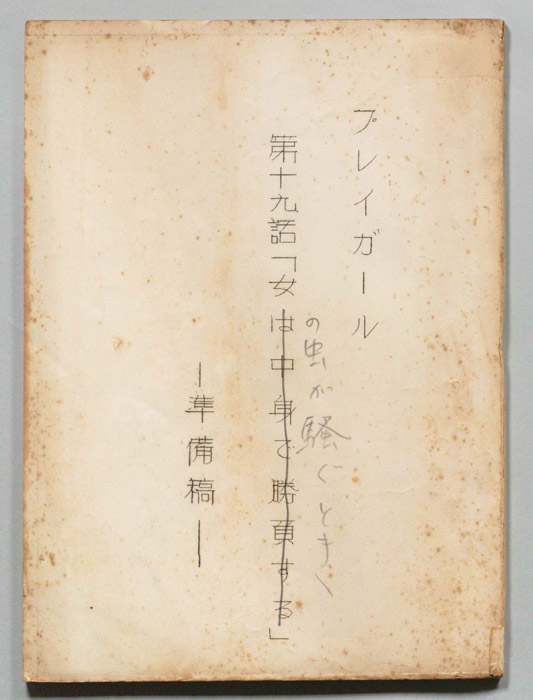 プレイガール
の虫が騒ぐとき
第十九話「女は中身で勝負する」
―準備稿―